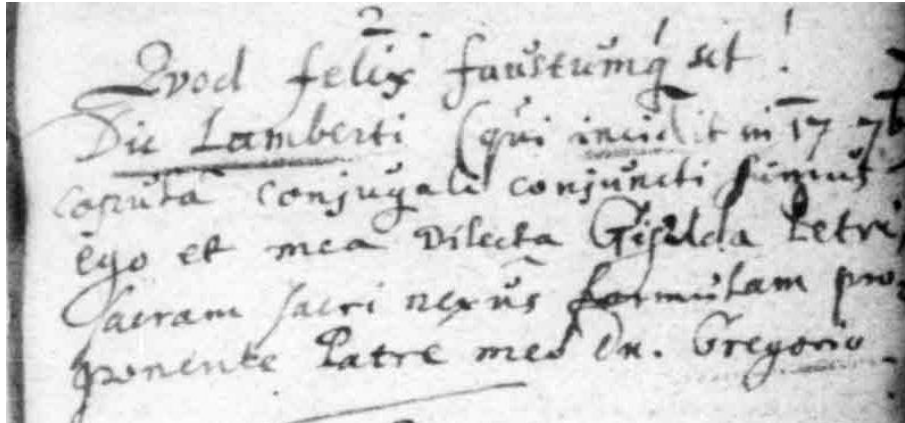 Qvod felix faustumq́ sit!
Die Lamberti (qui incidit in 17 7b
copula conjugali conjuncti sumus
ego et mea dilecta Gisilda Petri,
sacram sacri nexûs formulam pro-
ponente Patre meo Dn. Gregorio